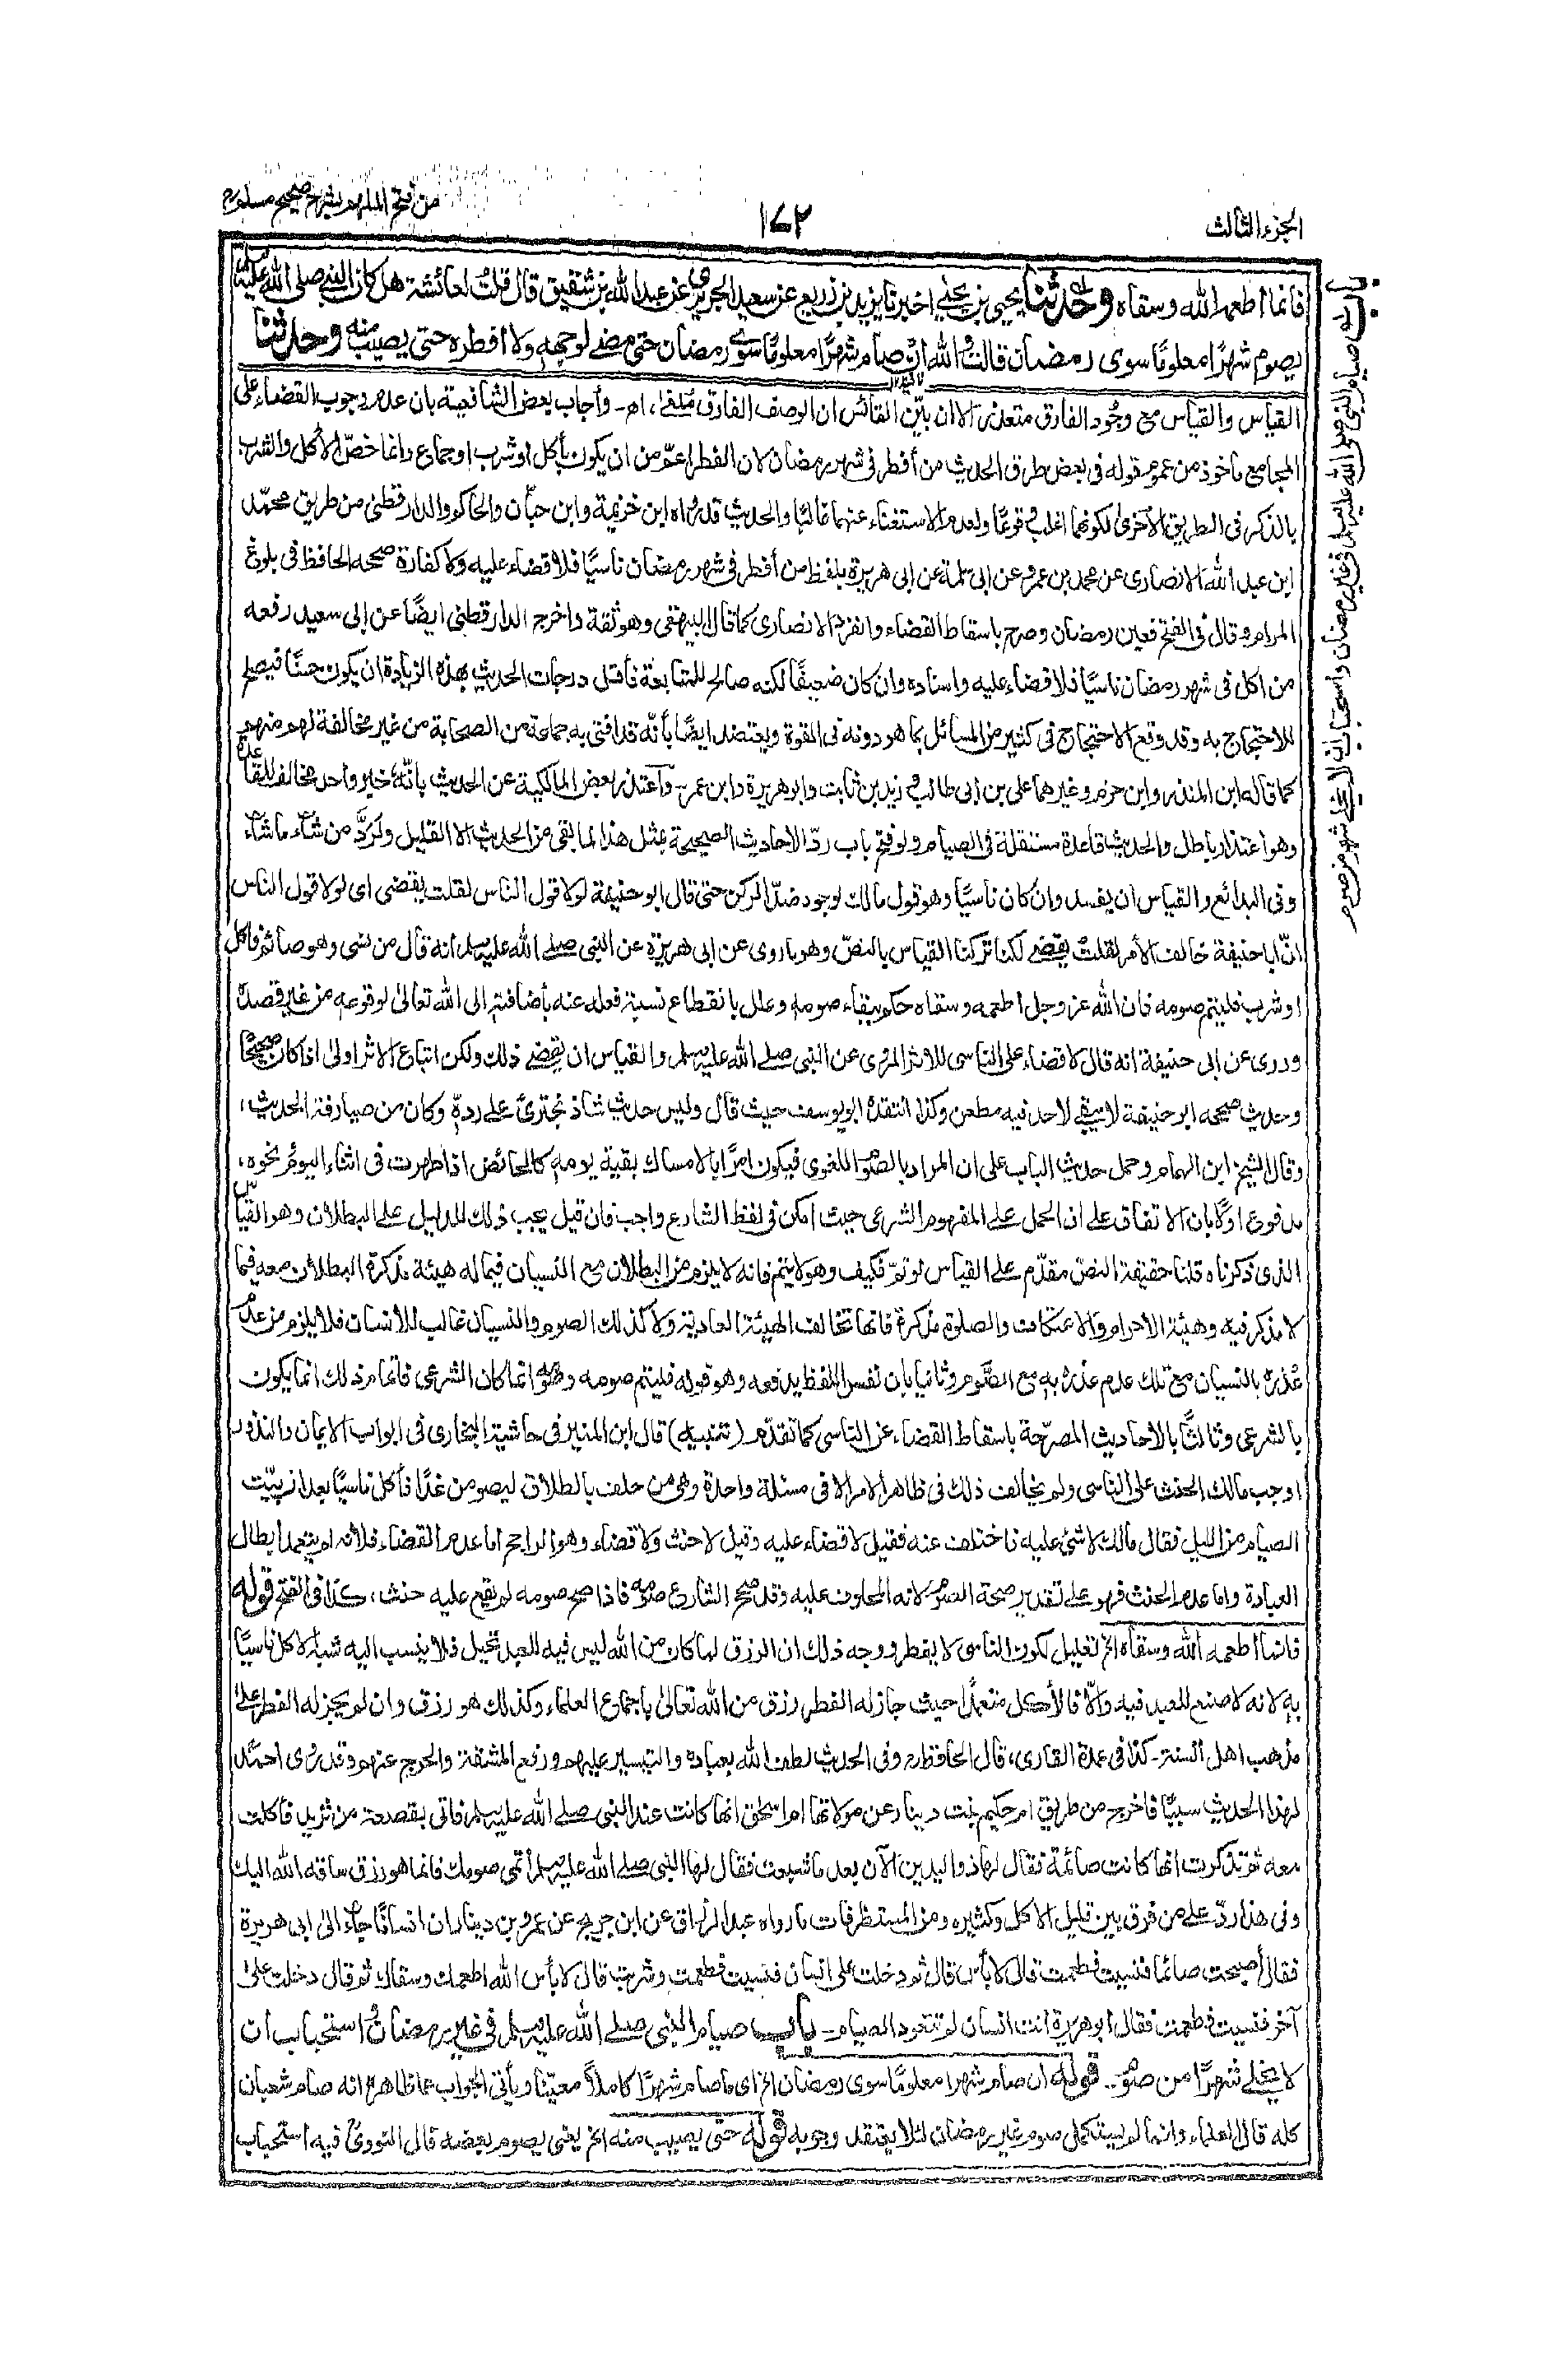 الجزء الثالث
١٧٢
من فتح الملهم بشرح صحيح مسلم
فانما أطعمه الله وسقاه وحدثنا يحيى بن يحيى اخبرنا يزيد بن زريع عن سعيد الجريري عن عبد الله بن شقيق قال قلت لعائشة هل كان النبي صلى الله عليه
يصوم شهرًا معلومًا سوى رمضان قالت والله ان صام شهرًا معلومًا سوى رمضان حتى مضى لوجهه ولا افطره حتى يصيب منه وحدثنا
القياس والقياس مع وجود الفارق متعذر الا ان يبيّن القائس ان الوصف الفارق مُلغى، اھ۔ وأجاب بعض الشافعية بان عدم وجوب القضاء على
المجامع مأخوذ من عموم قوله في بعض طرق الحديث من أفطر في شهر رمضان لان الفطر اعمّ من ان يكون بأكل او شرب او جماع وانما خصّ الأكل والشرب
بالذكر في الطريق الأخرى لكونهما اغلب وقوعًا ولعدم الاستغناء عنهما غالبًا والحديث قد رواه ابن خزيمة وابن حبّان والحاكم والدارقطني من طريق محمّد
ابن عبد الله الانصاري عن محمد بن عمرو عن ابى سلمة عن ابى هريرة بلفظ من أفطر في شهر رمضان ناسيًا فلا قضاء عليه ولا كفارة صححه الحافظ في بلوغ
المرام وقال في الفتح فعين رمضان وصرح باسقاط القضاء وانفرد الانصاري كما قال البيهقي وهو ثقة واخرج الدارقطني ايضًا عن ابى سعيد رفعه
من اكل في شهر رمضان ناسيًا فلا قضاء عليه واسناده وان كان ضعيفًا لكنه صالح للمتابعة فأقل درجات الحديث بهذه الزيادة ان يكون حسنًا فيصلح
للاحتجاج به وقد وقع الاحتجاج في كثير من المسائل بما هو دونه في القوة ويعتضد ايضًا بأنّه قد افتى به جماعة من الصحابة من غير مخالفة لهم منهم
كما قاله ابن المنذر وابن حزم وغيرهما على بن ابى طالب وزيد بن ثابت وابو هريرة وابن عمر۔ وأعتذر بعض المالكية عن الحديث بانّه خبر واحد مخالف للقاعدة
وهو اعتذار باطل والحديث قاعدة مستقلة في الصيام ولو فتح باب ردّ الاحاديث الصحيحة بمثل هذا لما بقى من الحديث الا القليل ولردَّ من شاء ما شاء
وفى البدائع والقياس ان يفسد وان كان ناسيًا وهو قول مالك لوجود ضدّ الركن حتى قال ابو حنيفة لولا قول الناس لقلت يقضى اى لولا قول الناس
انّ ابا حنيفة خالف الأمر لقلت يقضى لكنا تركنا القياس بالنصّ وهو ما روى عن ابى هريرة عن النبي صلے الله عليه وسلم انه قال من نسى وهو صائم فاكل
او شرب فليتم صومه فان الله عز وجل اطعمه وسقاه حكم ببقاء صومه وعلل بانقطاع نسبة فعله عنه بأضافته الى الله تعالىٰ لوقوعه من غير قصده
وروى عن ابى حنيفة انه قال لا قضاء على الناسى للاثر المروى عن النبي صلے الله عليه وسلم والقياس ان يقضى ذلك ولكن اتباع الاثر اولىٰ اذا كان صحيحًا
وحديث صححه ابو حنيفة لا يبقى لاحد فيه مطعن وكذا انتقده ابو يوسف حيث قال وليس حديث شاذ نجترئ على ردهٖ وكان من صيارفة الحديث،
وقال الشيخ ابن الهمام وحمل حديث الباب على ان المراد بالصوم اللغوى فيكون امرًا بالامساك بقية يومه كالحائض اذا طهرت في اثناء اليوم ونحوه،
مدفوع اوّلا بان الاتفاق على ان الحمل على المفهوم الشرعى حيث امكن في لفظ الشارع واجب فان قيل يجب ذلك للدليل على البطلان وهو القياس
الذى ذكرناه قلنا حقيقة النصّ مقدّم على القياس لو تمّ فكيف وهو لا يتم فانه لا يلزم من البطلان مع النسيان فيما له هيئة مذكرة البطلان معه فيما
لا مذكر فيه وهيئة الاحرام والاعتكاف والصلوة مذكرة فانها تخالف الهيئة العادية ولا كذلك الصوم والنسيان غالب للانسان فلا يلزم من عدم
عُذره بالنسيان مع تلك عدم عذره به مع الصَّوم وثانيا بان نفس اللفظ يدفعه وهو قوله فليتم صومه وصومه انما كان الشرعى فاتمام ذلك انما يكون
بالشرعى وثالثًا بالاحاديث المصرّحة باسقاط القضاء عن الناسى كما تقدّم۔ (تنبيه) قال ابن المنير في حاشية البخارى في ابواب الايمان والنذور
اوجب مالك الحنث على الناسى ولم يخالف ذلك في ظاهر الامر الا في مسئلة واحدة وهى من حلف بالطلاق ليصومن غدًا فأكل ناسيًا بعد ان بيّت
الصيام من الليل فقال مالك لا شئ عليه فاختلف عنه فقيل لا قضاء عليه وقيل لا حنث ولا قضاء وهو الراجح اما عدم القضاء فلانه لم يتعمد ابطال
العبادة واما عدم الحنث فهو على تقدير صحة الصوم لانه المحلوف عليه وقد صحح الشارع صومه فاذا صح صومه لم يقع عليه حنث، كذا في الفتح قوله
فانما اطعمه الله وسقاه الخ تعليل لكون الناسى لا يفطر ووجه ذلك ان الرزق لما كان من الله ليس فيه للعبد تحيل فلا ينسب اليه شبه الاكل ناسيًا
بهٖ لانه لا صنع للعبد فيه والّا فالأكل متعمدًا حيث جاز له الفطر رزق من الله تعالىٰ باجماع العلماء وكذلك هو رزق وان لم يجز له الفطر علىٰ
مذهب اهل السنة۔ كذا فى عمدة القارى، قال الحافظ رح وفى الحديث لطف الله بعباده والتيسير عليهم ورفع المشقة والحرج عنهم وقد روى احمد
لهذا الحديث سببًا فاخرج من طريق ام حكيم بنت دينار عن مولاتها ام اسحٰق انها كانت عند النبي صلے الله عليه وسلم فاتى بقصعة من ثريد فاكلت
معه ثم تذكرت انها كانت صائمة فقال لها ذو اليدين الآن بعد ما شبعت فقال لها النبي صلے الله عليه وسلم أتمى صومك فانما هو رزق ساقه الله اليك
وفى هذا ردّ على من فرق بين قليل الاكل وكثيره ومن المستظرفات ما رواه عبد الرزاق عن ابن جريج عن عمرو بن دينار ان انسانًا جاء الىٰ ابى هريرة
فقال أصبحت صائما فنسيت فطعمت قال لا بأس قال ثم دخلت على انسان فنسيت فطعمت وشربت قال لا بأس الله اطعمك وسقاك ثم قال دخلت علىٰ
آخر فنسيت فطعمت فقال ابو هريرة انت انسان لم تتعود الصيام۔ باب صيام النبى صلے الله عليه وسلم فى غير رمضان واستحباب ان
لا يخلى شهرًا من صوم۔ قوله ان صام شهرا معلومًا سوى رمضان الخ اى ما صام شهرًا كاملاً معيّنا ويأتى الجواب عما ظاهره انه صام شعبان
كله قال العلماء وانما لم يستكمل صوم غير رمضان لئلا يعتقد وجوبه قوله حتى يصيب منه الخ يعنى يصوم بعضه قال النووىؒ فيه استحباب
باب صيام النبي صلى الله عليه وسلم فى غير رمضان واستحباب ان لا يخلى شهر من صوم